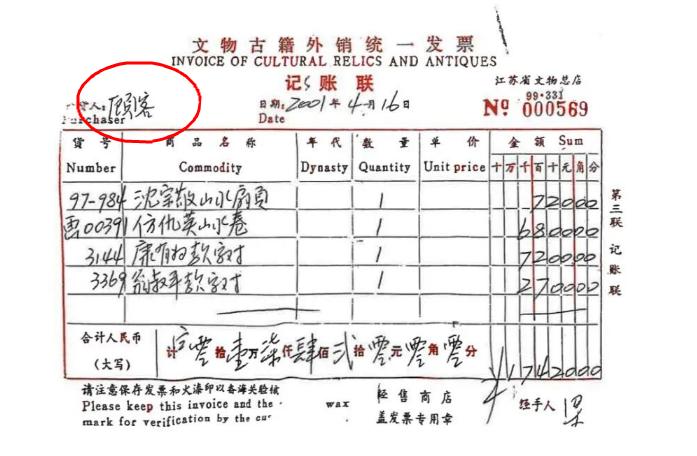 文物古籍外销统一发票
INVOICE OF CULTURAL RELICS AND ANTIQUES
记账联
江苏省文物总店
货人: 顾客
Purchaser
日期: 2001 年 4 月 16 日
Date
99·331
№ 000569
货号 商品名称 年代 数量 单价 金额 Sum
Number Commodity Dynasty Quantity Unit price 十万千百十元角分
97-984 沈宗敬山水扇页 1 72000
00391 仿仇英山水卷 1 680000
3144 康有为款字对 1 720000
3369 翁叔平款字对 1 270000
合计人民币
(大写)
计 零拾壹万柒仟肆佰贰拾零元零角零分
¥1742000
请注意保存发票和火漆印以备海关验核
Please keep this invoice and the wax
mark for verification by the cus
经售商店
盖发票专用章
经手人
第三联 记账联